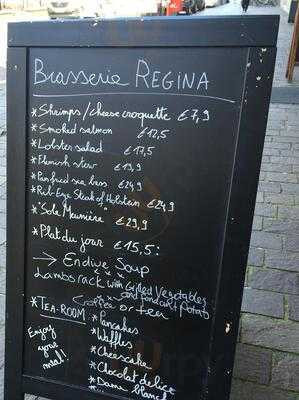 Brasserie REGINA
* Shrimps/cheese croquette € 7,9
* Smoked salmon € 12,5
* Lobster salad € 17,5
* Flemish stew € 19,9
* Panfried sea bass € 24,9
* Rib-Eye Steak of Holstein € 24,9
* Sole Meunière € 29,9
* Plat du jour € 15,5:
→ Endive Soup
Lambsrack with Grilled Vegetables
and fondant potato
Coffee or tea
* TEA-ROOM
* Pancakes
* Waffles
* Cheescake
* Chocolat delice
* Dame blanch
Enjoy
your
meal!